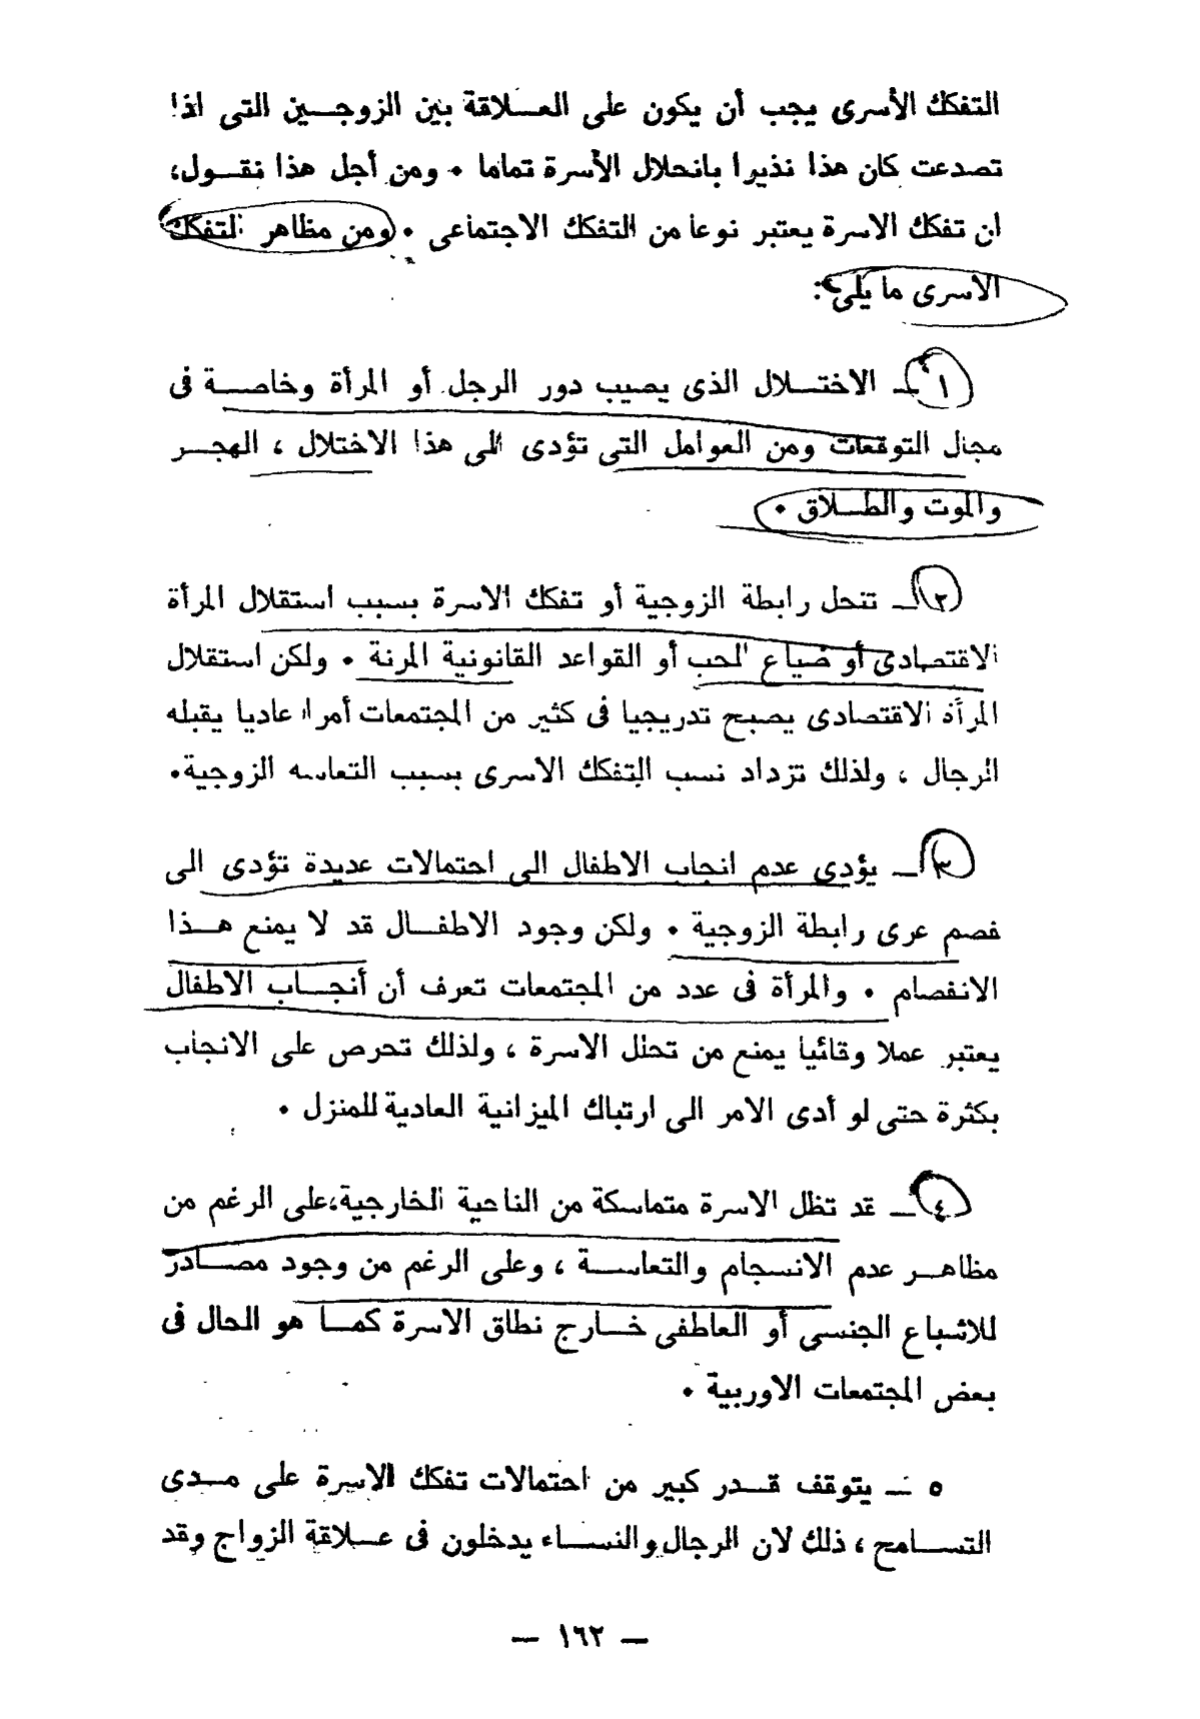 التفكك الأسرى يجب أن يكون على العلاقة بين الزوجين التى اذا
تصدعت كان هذا نذيرا بانحلال الأسرة تماما • ومن أجل هذا نقول،
ان تفكك الاسرة يعتبر نوعا من التفكك الاجتماعى • ومن مظاهر التفكك
الاسرى ما يلى :
١ ـ الاختلال الذى يصيب دور الرجل أو المرأة وخاصة فى
مجال التوقعات ومن العوامل التى تؤدى الى هذا الاختلال ، الهجر
والموت والطلاق •
٢ ـ تنحل رابطة الزوجية أو تفكك الاسرة بسبب استقلال المرأة
الاقتصادى أو ضياع الحب أو القواعد القانونية المرنة • ولكن استقلال
المرأة الاقتصادى يصبح تدريجيا فى كثير من المجتمعات أمرا عاديا يقبله
الرجال ، ولذلك تزداد نسب التفكك الاسرى بسبب التعاسه الزوجية•
٣ ـ يؤدى عدم انجاب الاطفال الى احتمالات عديدة تؤدى الى
فصم عرى رابطة الزوجية • ولكن وجود الاطفال قد لا يمنع هذا
الانفصام • والمرأة فى عدد من المجتمعات تعرف أن أنجاب الاطفال
يعتبر عملا وقائيا يمنع من تحلل الاسرة ، ولذلك تحرص على الانجاب
بكثرة حتى لو أدى الامر الى ارتباك الميزانية العادية للمنزل •
٤ ـ قد تظل الاسرة متماسكة من الناحية الخارجية،على الرغم من
مظاهر عدم الانسجام والتعاسة ، وعلى الرغم من وجود مصادر
للاشباع الجنسى أو العاطفى خارج نطاق الاسرة كما هو الحال فى
بعض المجتمعات الاوربية •
٥ ـ يتوقف قدر كبير من احتمالات تفكك الاسرة على مدى
التسامح ، ذلك لان الرجال والنساء يدخلون فى علاقة الزواج وقد
— ١٦٢ —